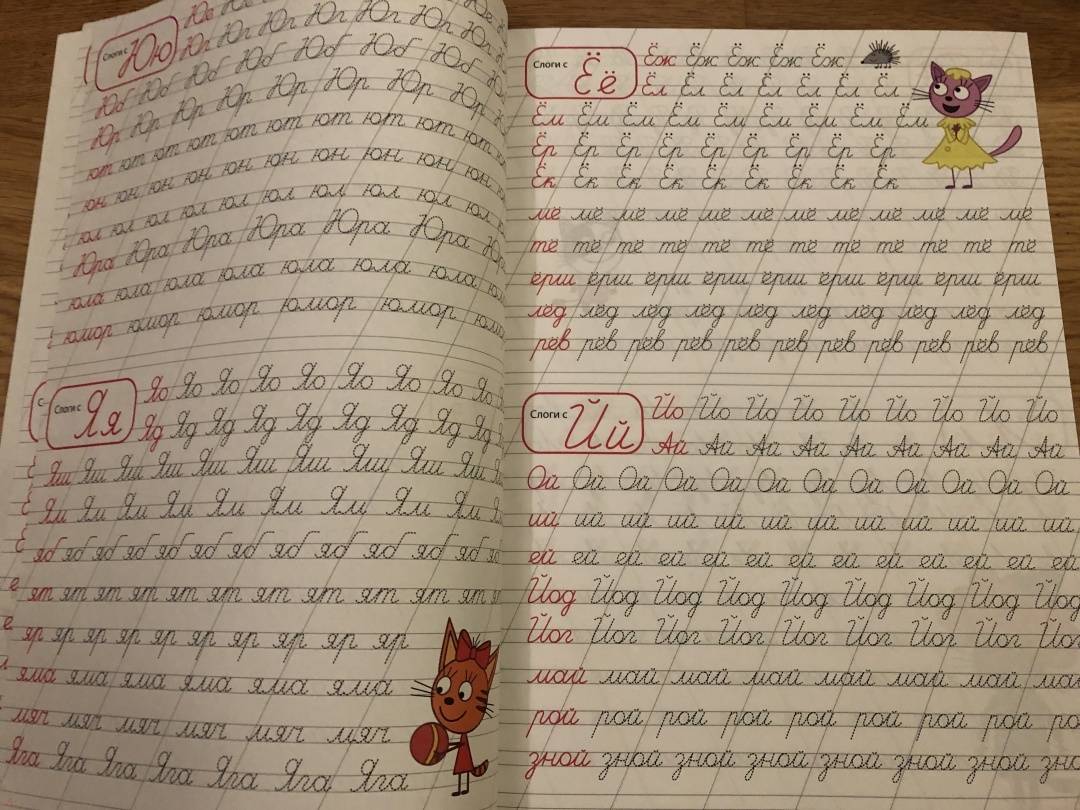 Слоги с Юю
Юг Юг Юг Юг Юг Юг Юг
Юб Юб Юб Юб Юб Юб Юб
Юр Юр Юр Юр Юр Юр Юр Юр
ют ют ют ют ют ют ют ют ют ют
юн юн юн юн юн юн юн юн юн юн
юл юл юл юл юл юл юл юл юл юл
Юра Юра Юра Юра Юра Юра
юла юла юла юла юла юла юла
юмор юмор юмор юмор юмор
Слоги с Яя
Яо Яо Яо Яо Яо Яо Яо Яо Яо
Яд Яд Яд Яд Яд Яд Яд Яд Яд
Яш Яш Яш Яш Яш Яш Яш Яш Яш Яш
Ям Ям Ям Ям Ям Ям Ям Ям Ям
яб яб яб яб яб яб яб яб яб яб яб яб
ят ят ят ят ят ят ят ят ят ят ят
яр яр яр яр яр яр яр яр яр яр
яма яма яма яма яма яма
мяч мяч мяч мяч мяч мяч
Яга Яга Яга Яга Яга Яга Яга
Слоги с Ёё
Ёж Ёж Ёж Ёж Ёж
Ёл Ёл Ёл Ёл Ёл Ёл Ёл
Ём Ём Ём Ём Ём Ём Ём Ём Ём
Ёр Ёр Ёр Ёр Ёр Ёр Ёр Ёр Ёр
Ёк Ёк Ёк Ёк Ёк Ёк Ёк Ёк Ёк
мё мё мё мё мё мё мё мё мё мё мё мё
тё тё тё тё тё тё тё тё тё тё тё тё
ёрш ёрш ёрш ёрш ёрш ёрш ёрш ёрш ёрш
лёд лёд лёд лёд лёд лёд лёд лёд лёд лёд
рёв рёв рёв рёв рёв рёв рёв рёв рёв рёв рёв
Слоги с Йй
Йо Йо Йо Йо Йо Йо Йо Йо Йо
Ай Ай Ай Ай Ай Ай Ай Ай Ай
Ой Ой Ой Ой Ой Ой Ой Ой Ой Ой Ой Ой
ий ий ий ий ий ий ий ий ий ий ий ий
ей ей ей ей ей ей ей ей ей ей ей ей
Йод Йод Йод Йод Йод Йод Йод Йод Йод
Йог Йог Йог Йог Йог Йог Йог Йог Йог
май май май май май май май
рой рой рой рой рой рой рой рой
зной зной зной зной зной зной зной